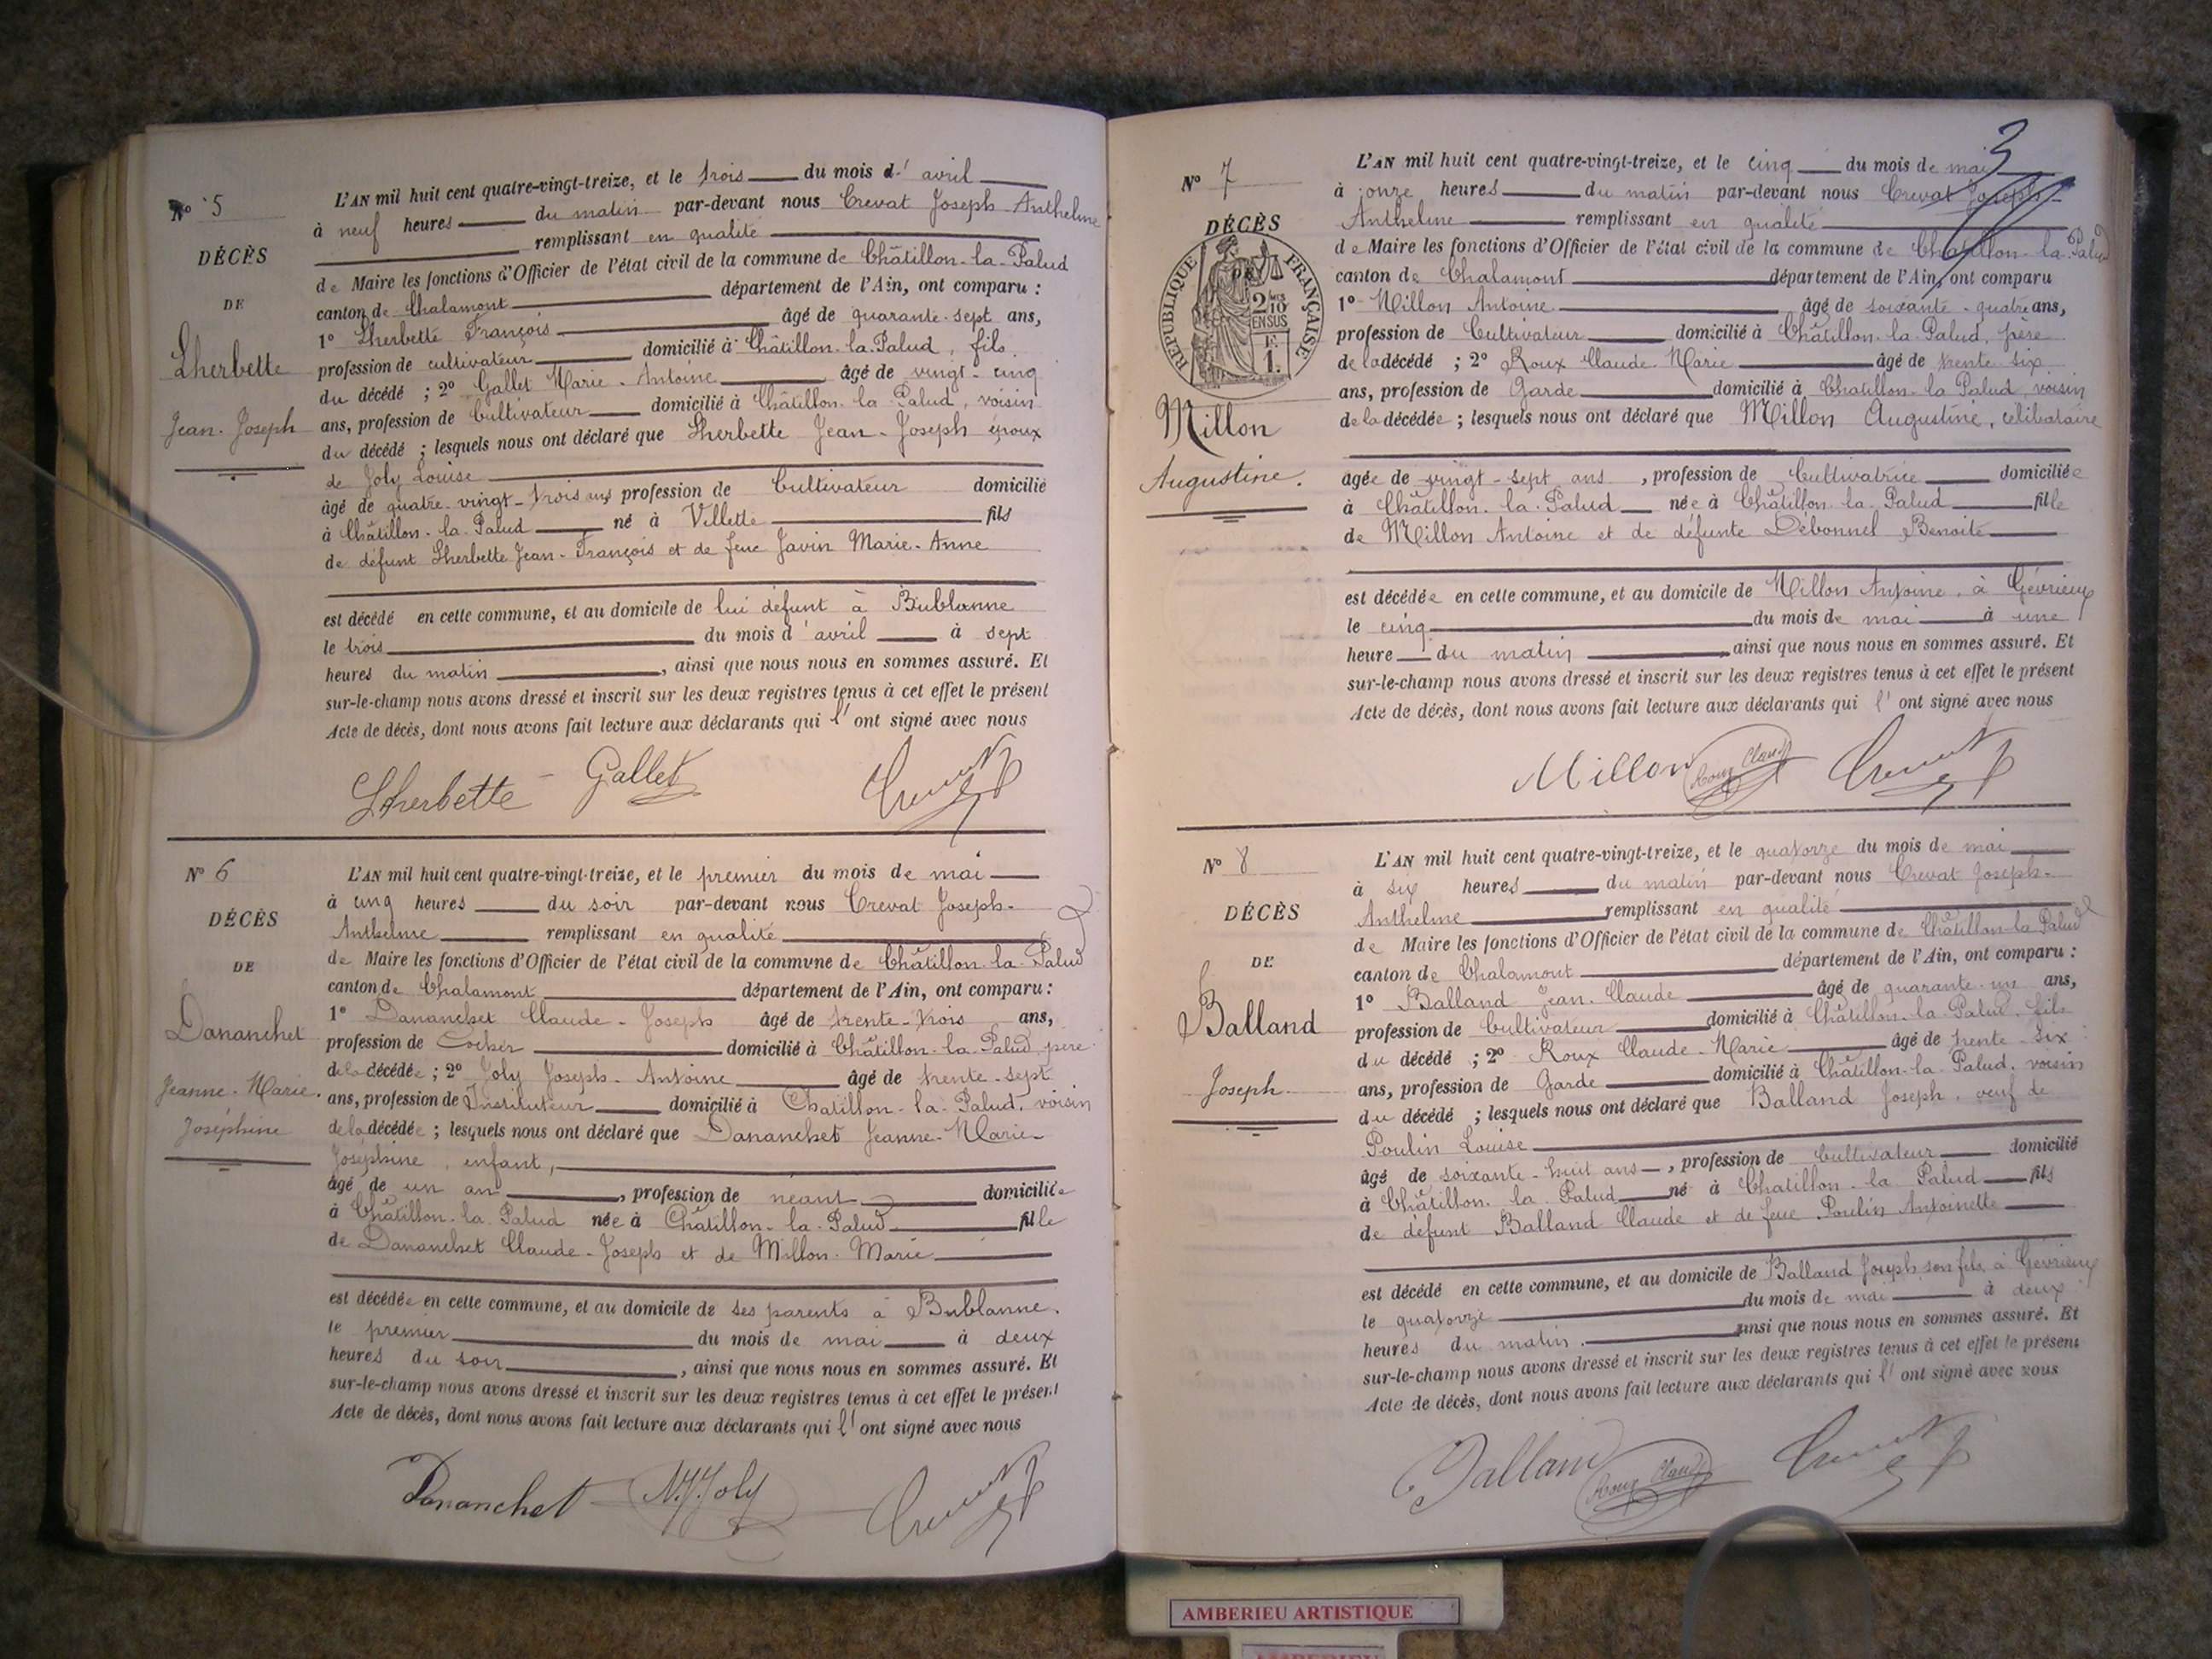 N° 5
DÉCÈS
DE
Lherbette
Jean-Joseph
L'AN mil huit cent quatre-vingt-treize, et le trois du mois d'avril
à neuf heures du matin par-devant nous Crevat Joseph-Anthelme
remplissant en qualité
de Maire les fonctions d'Officier de l'état civil de la commune de Châtillon-la-Palud
canton de Chalamont département de l'Ain, ont comparu :
1° Lherbette François âgé de quarante-sept ans,
profession de cultivateur domicilié à Châtillon-la-Palud, fils
du décédé ; 2° Gallet Marie-Antoine âgé de vingt-cinq
ans, profession de Cultivateur domicilié à Châtillon-la-Palud, voisin
du décédé ; lesquels nous ont déclaré que Lherbette Jean-Joseph époux
de Joly Louise
âgé de quatre-vingt-trois ans profession de Cultivateur domicilié
à Châtillon-la-Palud né à Villette fils
de défunt Lherbette Jean-François et de feue Javin Marie-Anne
est décédé en cette commune, et au domicile de lui défunt à Bublanne
le trois du mois d'avril à sept
heures du matin, ainsi que nous nous en sommes assuré. Et
sur-le-champ nous avons dressé et inscrit sur les deux registres tenus à cet effet le présent
Acte de décès, dont nous avons fait lecture aux déclarants qui l'ont signé avec nous
Lherbette - Gallet Crevat
N° 6
DÉCÈS
DE
Dananchet
Jeanne-Marie
Joséphine
L'AN mil huit cent quatre-vingt-treize, et le premier du mois de mai
à cinq heures du soir par-devant nous Crevat Joseph-
Anthelme remplissant en qualité
de Maire les fonctions d'Officier de l'état civil de la commune de Châtillon-la-Palud
canton de Chalamont département de l'Ain, ont comparu :
1° Dananchet Claude-Joseph âgé de trente-trois ans,
profession de Cocher domicilié à Châtillon-la-Palud, père
de la décédée ; 2° Joly Joseph-Antoine âgé de trente-sept
ans, profession de Instituteur domicilié à Chatillon-la-Palud, voisin
de la décédée ; lesquels nous ont déclaré que Dananchet Jeanne-Marie-
Joséphine, enfant,
âgé de un an, profession de néant domiciliée
à Châtillon-la-Palud née à Châtillon-la-Palud fille
de Dananchet Claude-Joseph et de Millon Marie
est décédée en cette commune, et au domicile de ses parents à Bublanne.
le premier du mois de mai à deux
heures du soir, ainsi que nous nous en sommes assuré. Et
sur-le-champ nous avons dressé et inscrit sur les deux registres tenus à cet effet le présent
Acte de décès, dont nous avons fait lecture aux déclarants qui l'ont signé avec nous
Dananchet Joly Crevat
3
N° 7
DÉCÈS
DE
RÉPUBLIQUE FRANÇAISE
2/10
EN SUS
1F.
Millon
Augustine.
L'AN mil huit cent quatre-vingt-treize, et le cinq du mois de mai
à onze heures du matin par-devant nous Crevat Joseph-
Anthelme remplissant en qualité
de Maire les fonctions d'Officier de l'état civil de la commune de Chatillon-la-Palud
canton de Chalamont département de l'Ain, ont comparu
1° Millon Antoine âgé de soixante-quatre ans,
profession de Cultivateur domicilié à Châtillon-la-Palud, père
de la décédé ; 2° Roux Claude-Marie âgé de trente-six
ans, profession de Garde domicilié à Chatillon-la-Palud, voisin
de la décédée ; lesquels nous ont déclaré que Millon Augustine, célibataire
agée de vingt-sept ans, profession de Cultivatrice domiciliée
à Châtillon-la-Palud née à Châtillon-la-Palud fille
de Millon Antoine et de défunte Débonnel Benoite
est décédée en cette commune, et au domicile de Millon Antoine, à Gévrieux
le cinq du mois de mai à une
heure du matin ainsi que nous nous en sommes assuré. Et
sur-le-champ nous avons dressé et inscrit sur les deux registres tenus à cet effet le présent
Acte de décès, dont nous avons fait lecture aux déclarants qui l'ont signé avec nous
Millon Roux Claude Crevat
N° 8
DÉCÈS
DE
Balland
Joseph
L'AN mil huit cent quatre-vingt-treize, et le quatorze du mois de mai
à six heures du matin par-devant nous Crevat Joseph-
Anthelme remplissant en qualité
de Maire les fonctions d'Officier de l'état civil de la commune de Châtillon-la-Palud
canton de Chalamont département de l'Ain, ont comparu :
1° Balland Jean-Claude âgé de quarante-un ans,
profession de Cultivateur domicilié à Châtillon-la-Palud, fils
du décédé ; 2° Roux Claude-Marie âgé de trente-six
ans, profession de Garde domicilié à Châtillon-la-Palud, voisin
du décédé ; lesquels nous ont déclaré que Balland Joseph, veuf de
Poulin Louise
âgé de soixante-huit ans, profession de Cultivateur domicilié
à Châtillon-la-Palud né à Chatillon-la-Palud fils
de défunt Balland Claude et de feue Poulin Antoinette
est décédé en cette commune, et au domicile de Balland Joseph son fils, à Gévrieux
le quatorze du mois de mai à deux
heures du matin. ainsi que nous nous en sommes assuré. Et
sur-le-champ nous avons dressé et inscrit sur les deux registres tenus à cet effet le présent
Acte de décès, dont nous avons fait lecture aux déclarants qui l'ont signé avec nous
Balland Roux Claude Crevat
AMBERIEU ARTISTIQUE
AMBERIEU